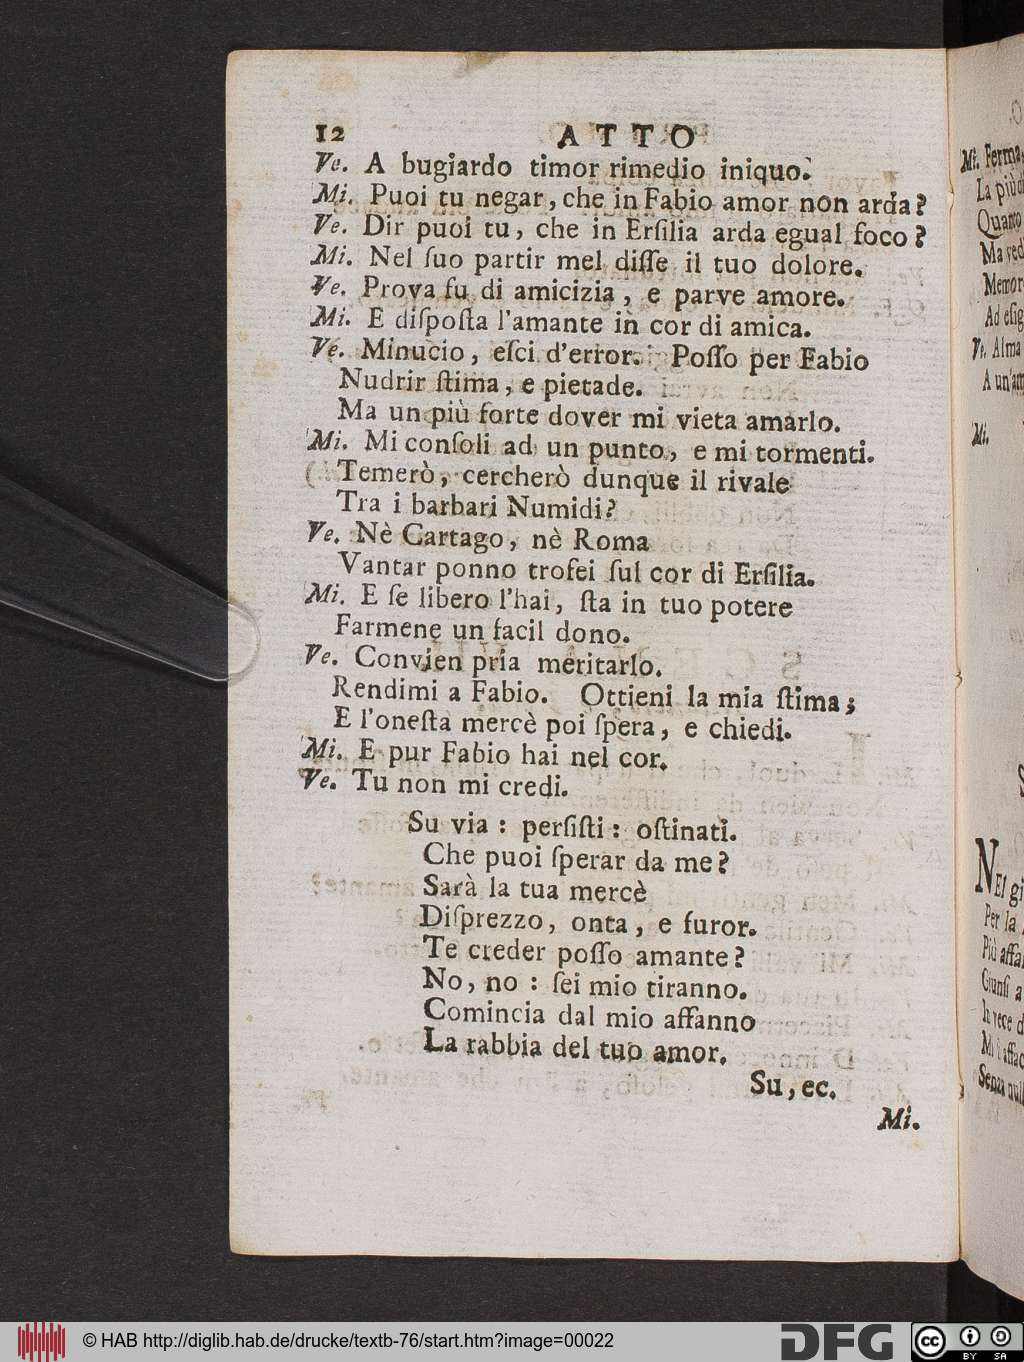 12 ATTO
Ve. A bugiardo timor rimedio iniquo.
Mi. Puoi tu negar, che in Fabio amor non arda?
Ve. Dir puoi tu, che in Erſilia arda egual foco?
Mi. Nel ſuo partir mel diſſe il tuo dolore.
Ve. Prova fu di amicizia, e parve amore.
Mi. E diſpoſta l'amante in cor di amica.
Ve. Minucio, eſci d'error. Poſſo per Fabio
Nudrir ſtima, e pietade.
Ma un più forte dover mi vieta amarlo.
Mi. Mi conſoli ad un punto, e mi tormenti.
Temerò, cercherò dunque il rivale
Tra i barbari Numidi?
Ve. Nè Cartago, nè Roma
Vantar ponno trofei ſul cor di Erſilia.
Mi. E ſe libero l'hai, ſta in tuo potere
Farmene un facil dono.
Ve. Convien pria meritarlo.
Rendimi a Fabio. Ottieni la mia ſtima;
E l'oneſta mercè poi ſpera, e chiedi.
Mi. E pur Fabio hai nel cor.
Ve. Tu non mi credi.
Su via: perſiſti: oſtinati.
Che puoi ſperar da me?
Sarà la tua mercè
Diſprezzo, onta, e furor.
Te creder poſſo amante?
No, no: ſei mio tiranno.
Comincia dal mio affanno
La rabbia del tuo amor.
Su, ec.
Mi.
Mi. Ferma
La più
Quanto
Ma ved
Memor
Ad eſig
Ve. Alma
A un'am
Mi.
NEl gi
Per la
Più affa
Giunſi a
In vece d
Mi ſ affac
Senza nul
© HAB http://diglib.hab.de/drucke/textb-76/start.htm?image=00022
DFG
cc BY SA